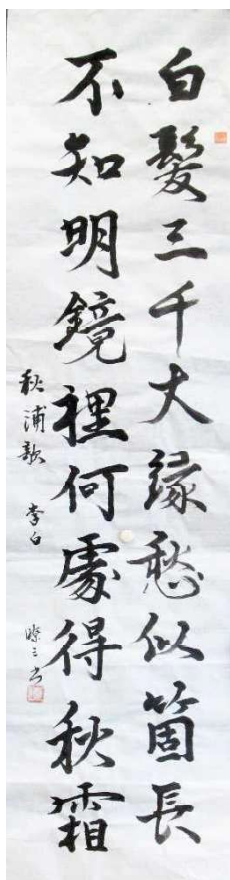 白髮三千丈緣愁似箇長
不知明鏡裡何處得秋霜
秋浦歌 李白